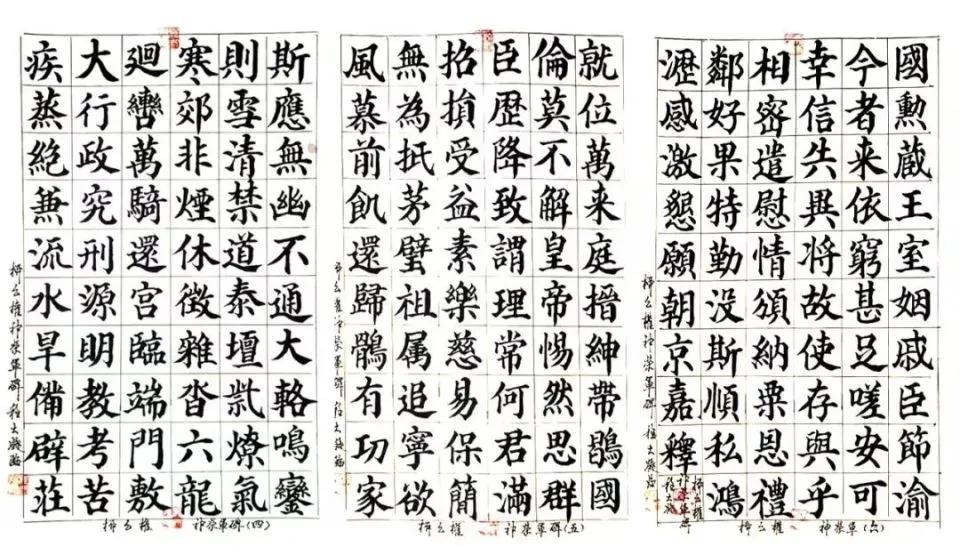 斯應無幽不通大輅鳴鑾
則雪清禁道泰壇祡燎氣
寒郊非煙休徵雜沓六龍
廻轡萬騎還宮臨端門敷
大行政究刑源明教考苦
疾蒸絶兼流水旱備辟莊
柳公權神策軍碑
柳公權 神策軍碑(四)
就位萬来庭搢紳帶鶡國
倫莫不解皇帝惕然思群
臣歷降致謂理常何君滿
招損受益素樂慈易保簡
無為抵茅璧祖属追寧欲
風慕前飢還歸鶻有㓛家
柳公權神策軍碑
柳公權 神策軍碑(五)
國勲蔵王室姻戚臣節渝
今者来依窮甚足嗟安可
幸信異将故使存與乎
相宻遣慰情頒納粟恩禮
鄰好果特勤没斯順私鴻
瀝感激懇願朝京嘉釋
柳公權神策軍碑
柳公權 神策軍(六)